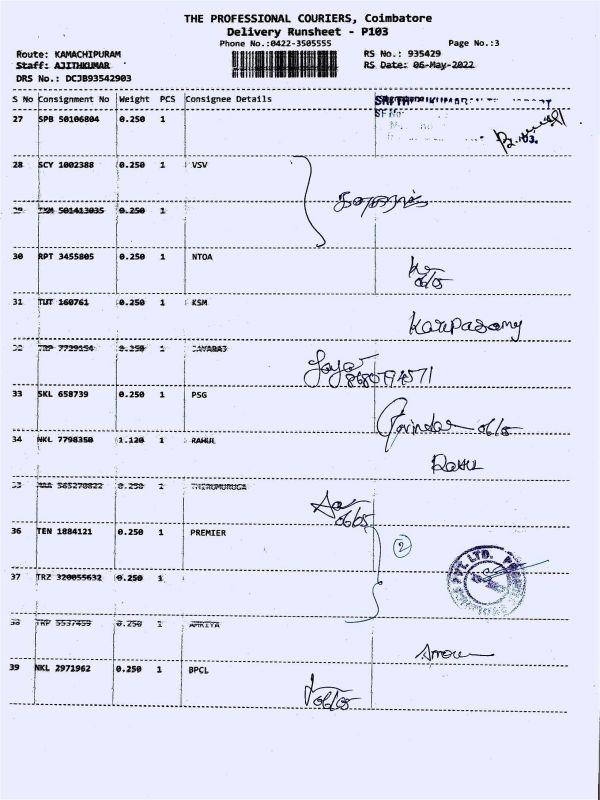 THE PROFESSIONAL COURIERS, Coimbatore
Delivery Runsheet - P103
Phone No.:0422-3505555
Page No.:3
Route: KAMACHIPURAM
RS No.: 935429
Staff: AJITHKUMAR
RS Date: 06-May-2022
DRS No.: DCJB93542903
S No Consignment No Weight PCS Consignee Details
27 SPB 50106804 0.250 1
28 SCY 1002388 0.250 1 VSV
29 TXM 501413035 0.250 1
30 RPT 3455805 0.250 1 NTOA
06/05
31 TUT 160761 0.250 1 KSM
Karupasamy
32 TRP 7729154 0.250 1 JAYARAJ
33 SKL 658739 0.250 1 PSG
Govindan 06/05
34 NKL 7798350 1.120 1 RAHUL
35 MAA 565270822 0.250 1 THIRUMURUGA
06/05
36 TEN 1884121 0.250 1 PREMIER
2
37 TRZ 320055632 0.250 1
PVT. LTD.
38 TRP 5537459 0.250 1 AMRITA
39 NKL 2971962 0.250 1 BPCL
06/05